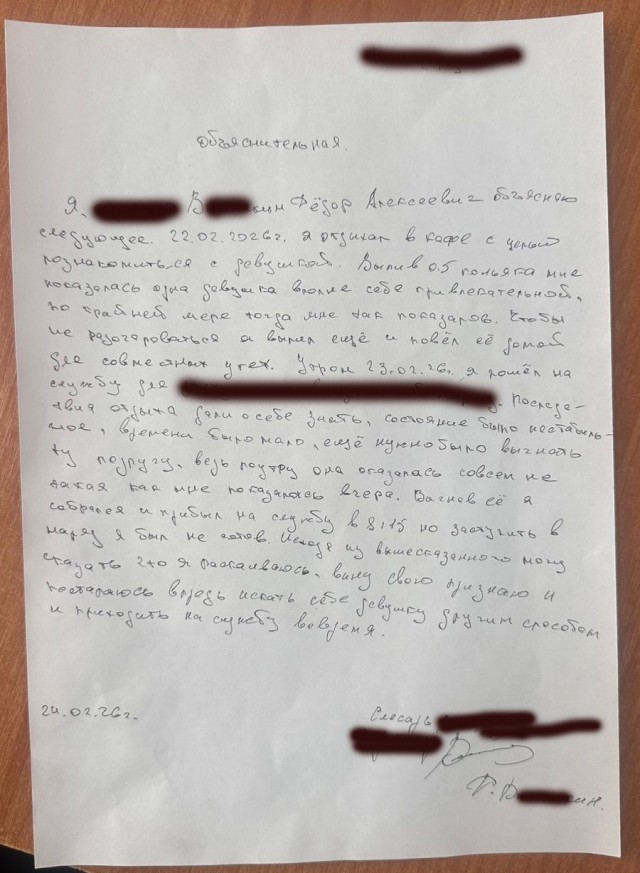 Объяснительная.
Я, В ин Фёдор Алексеевич объясняю
следующее. 22.02.2026г. я отдыхал в кафе с целью
познакомиться с девушкой. Выпив 0.5 коньяка мне
показалась одна девушка вполне себе привлекательной,
по крайней мере тогда мне так показалось. Чтобы
не разочароваться я выпил ещё и повёл её домой
для совместных утех. Утром 23.02.26г. я пошёл на
службу для . Последс-
твия отдыха дали о себе знать, состояние было нестабиль-
ное, времени было мало, ещё нужно было выгнать
ту подругу, ведь поутру она оказалась совсем не
такая как мне показалось вчера. Выгнав её я
собрался и прибыл на службу в 8:15 но заступить в
наряд я был не готов. Исходя из вышесказанного могу
сказать что я раскаиваюсь, вину свою признаю и
постараюсь впредь искать себе девушку другим способом
и приходить на службу вовремя.
24.02.26г.
Слесарь
Ф. В ин.